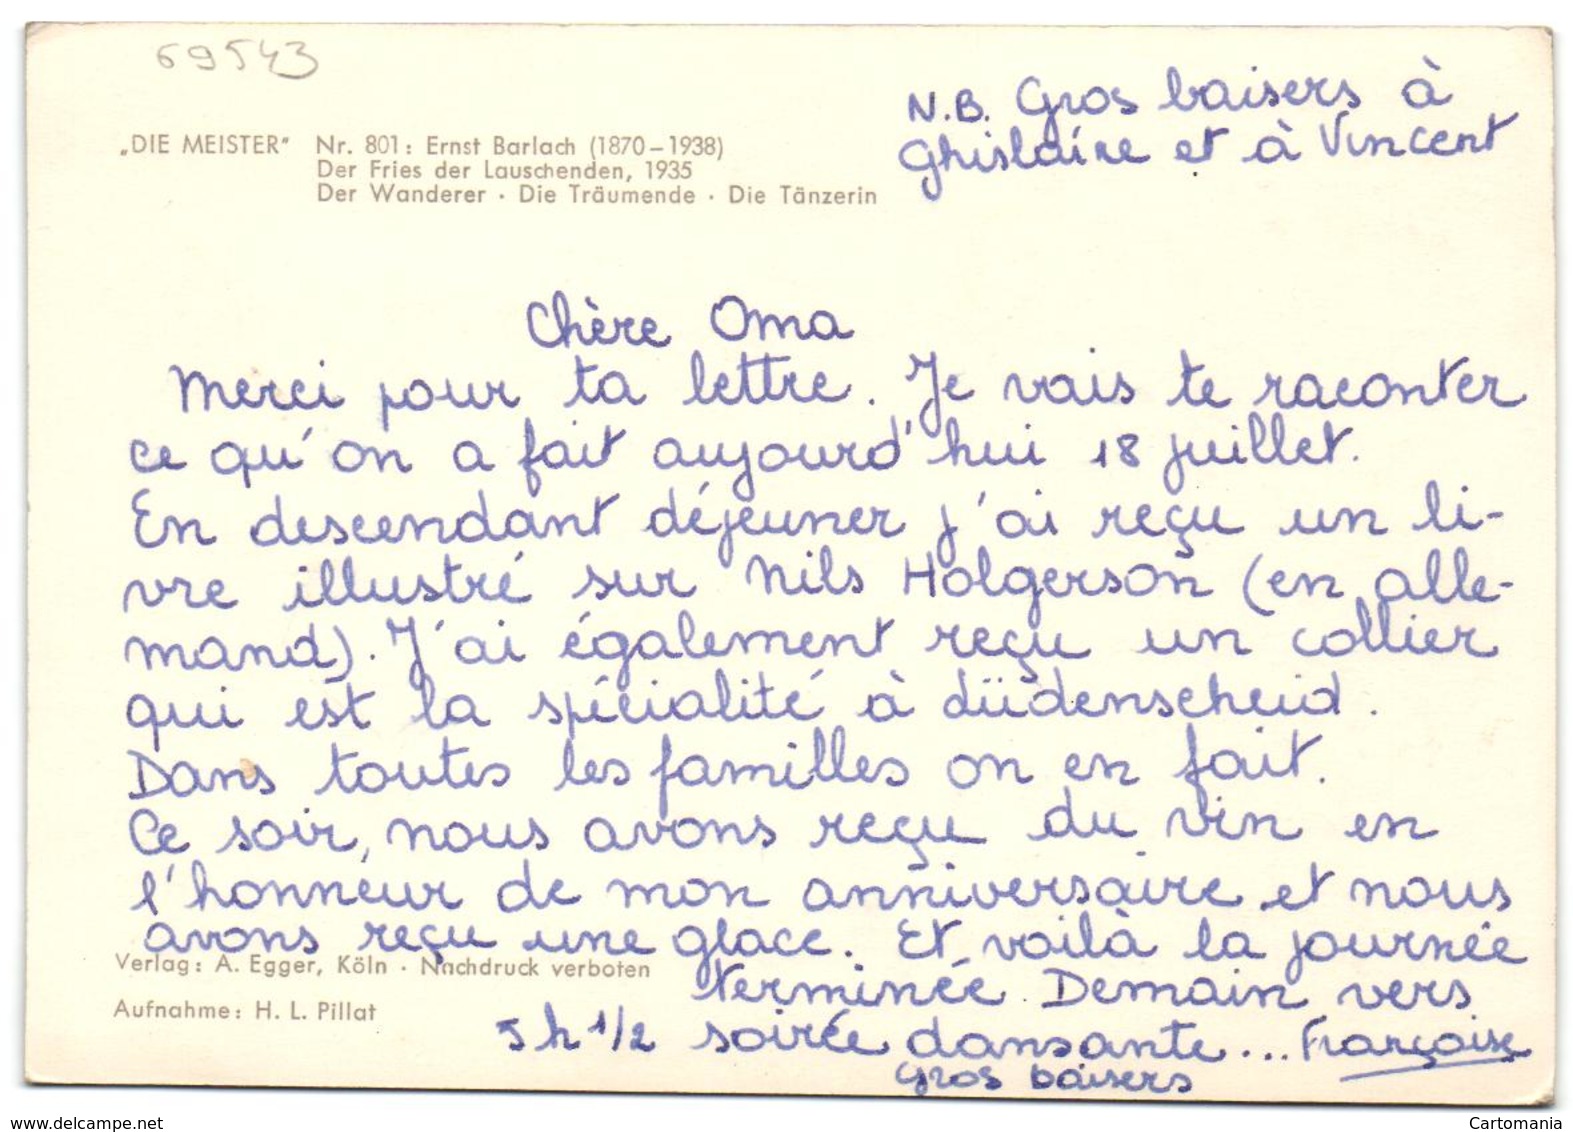 69543
N.B. Gros baisers à
Ghislaine et à Vincent
„DIE MEISTER" Nr. 801: Ernst Barlach (1870–1938)
Der Fries der Lauschenden, 1935
Der Wanderer · Die Träumende · Die Tänzerin
Chère Oma
Merci pour ta lettre. Je vais te raconter
ce qu'on a fait aujourd'hui 18 juillet.
En descendant déjeuner j'ai reçu un li-
vre illustré sur Nils Holgerson (en alle-
mand). J'ai également reçu un collier
qui est la spécialité à düdenscheid.
Dans toutes les familles on en fait.
Ce soir, nous avons reçu du vin en
l'honneur de mon anniversaire et nous
avons reçu une glace. Et voilà la journée
terminée. Demain vers
5h 1/2 soirée dansante... Françoise
Gros baisers
Verlag: A. Egger, Köln · Nachdruck verboten
Aufnahme: H. L. Pillat
www.delcampe.net
Cartomania